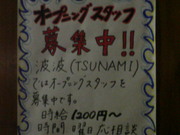 オープニングスタッフ
募集中!!
波波(TSUNAMI)
ではオープニングスタッフを
募集中です。
時給 1200円〜
時間 曜日応相談